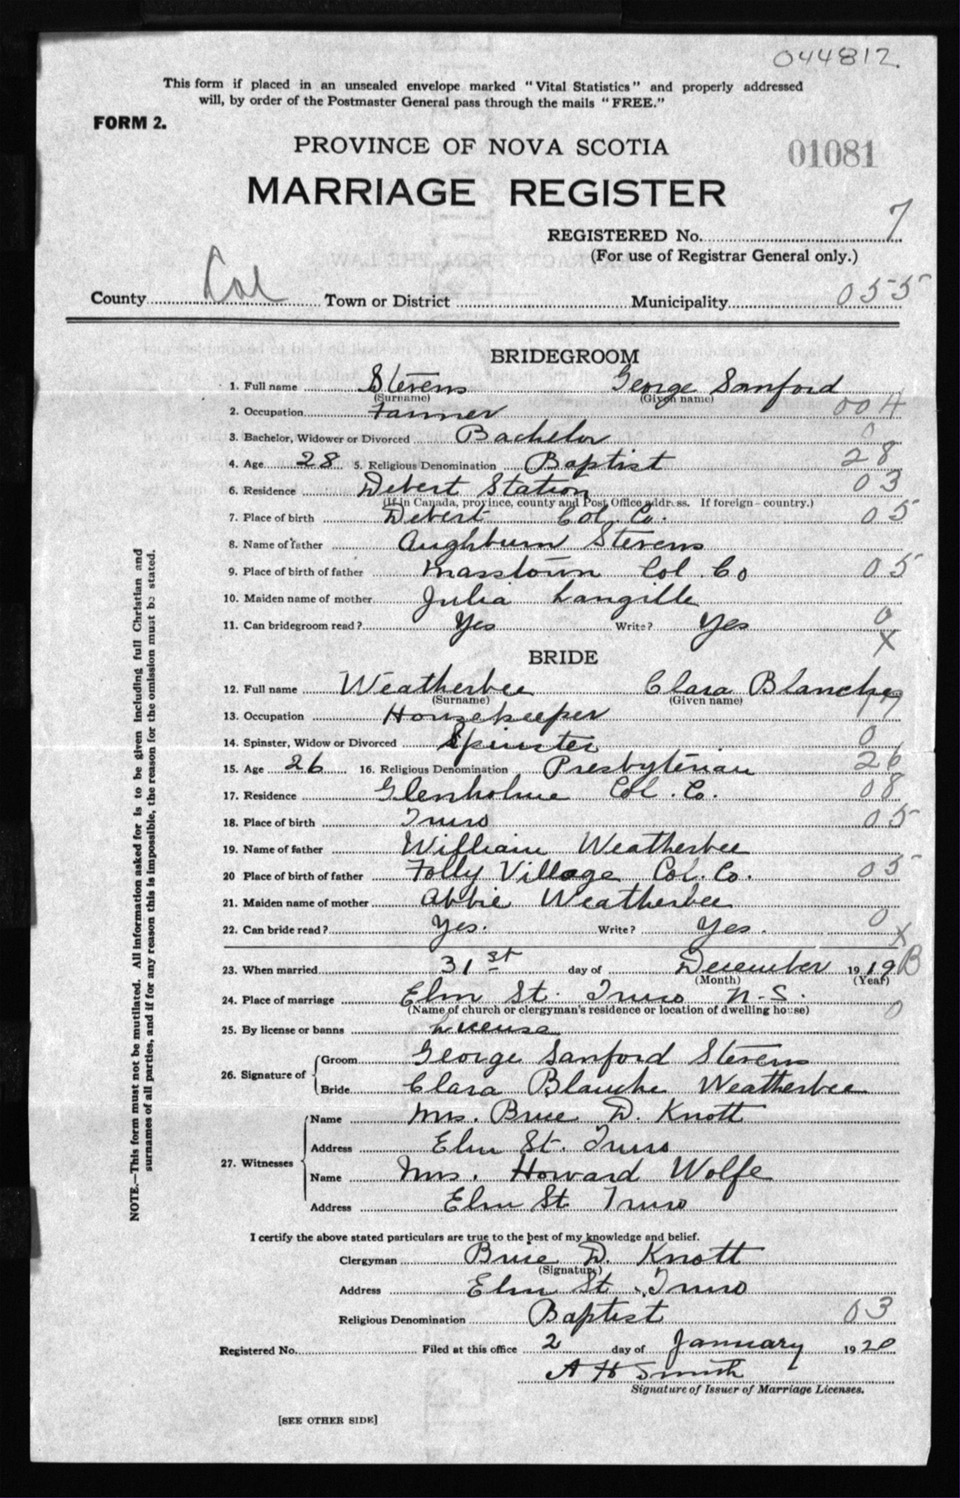 044812
This form if placed in an unsealed envelope marked "Vital Statistics" and properly addressed
will, by order of the Postmaster General pass through the mails "FREE."
FORM 2.
PROVINCE OF NOVA SCOTIA
01081
MARRIAGE REGISTER
REGISTERED No. 7
(For use of Registrar General only.)
County Col Town or District Municipality 055
BRIDEGROOM
1. Full name Stevens George Sanford
(Surname) (Given name)
2. Occupation Farmer 004
3. Bachelor, Widower or Divorced Bachelor 0
4. Age 28 5. Religious Denomination Baptist 28
6. Residence Debert Station 03
(If in Canada, province, county and Post Office address. If foreign - country.)
7. Place of birth Debert Col. Co. 05
8. Name of father Aughburn Stevens
9. Place of birth of father Masstown Col. Co 05
10. Maiden name of mother Julia Langille
11. Can bridegroom read? Yes Write? Yes 0
X
BRIDE
12. Full name Weatherbee Clara Blanche
(Surname) (Given name)
13. Occupation Housekeeper
14. Spinster, Widow or Divorced Spinster 0
15. Age 26 16. Religious Denomination Presbyterian 26
17. Residence Glenholme Col. Co. 08
18. Place of birth Truro 05
19. Name of father William Weatherbee
20 Place of birth of father Folly Village Col. Co. 05
21. Maiden name of mother Abbie Weatherbee
22. Can bride read? Yes. Write? Yes. 0
X
23. When married 31st day of December 1919 B
(Month) (Year)
24. Place of marriage Elm St. Truro N.S.
(Name of church or clergyman's residence or location of dwelling house) 0
25. By license or banns License
26. Signature of Groom George Sanford Stevens
Bride Clara Blanche Weatherbee
27. Witnesses Name Mrs. Bruce D. Knott
Address Elm St. Truro
Name Mrs. Howard Wolfe
Address Elm St Truro
I certify the above stated particulars are true to the best of my knowledge and belief.
Clergyman Bruce D. Knott
(Signature)
Address Elm St., Truro
Religious Denomination Baptist 03
Registered No. Filed at this office 2 day of January 1920
A H Smith
Signature of Issuer of Marriage Licenses.
[SEE OTHER SIDE]
NOTE.—This form must not be mutilated. All information asked for is to be given including full Christian and
surnames of all parties, and if for any reason this is impossible, the reason for the omission must be stated.